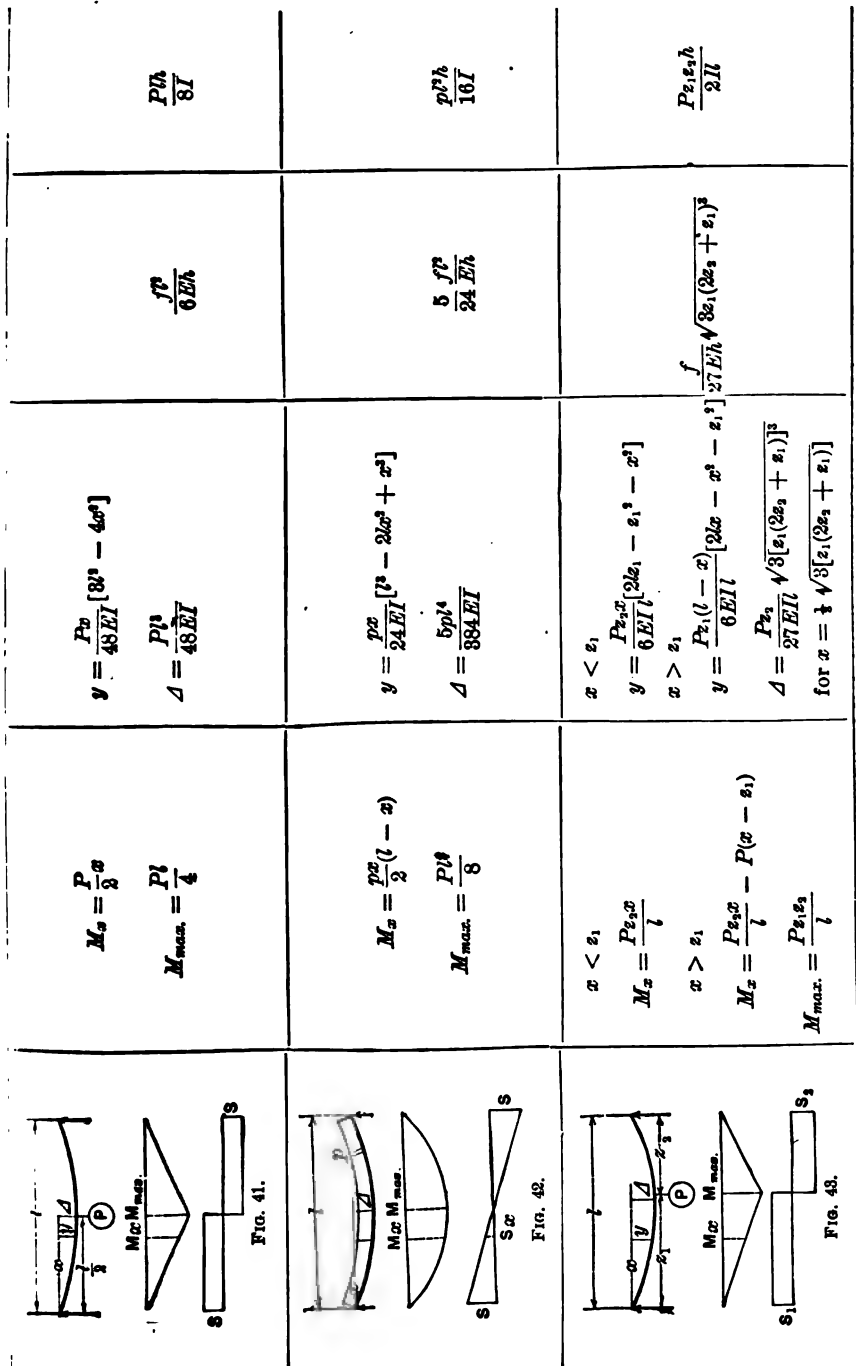 l
x
y
Δ
l/2
P
Mx Mmax.
S
S
FIG. 41.
M_x = P/2 x
M_max. = Pl/4
y = Px/48EI [3l² − 4x²]
Δ = Pl³/48EI
fl²/6Eh
Plh/8I
l
p
Δ
Mx Mmax.
Sx
S
FIG. 42.
M_x = px/2 (l − x)
M_max. = Pl²/8
y = px/24EI [l³ − 2lx² + x³]
Δ = 5pl⁴/384EI
5/24 fl²/Eh
pl²h/16I
l
x
y
Δ
z₁
z₂
P
Mx Mmax.
S₁
S₂
FIG. 43.
x < z₁
M_x = Pz₂x/l
x > z₁
M_x = Pz₂x/l − P(x − z₁)
M_max. = Pz₁z₂/l
x < z₁
y = Pz₂x/6EIl [2lz₁ − z₁² − x²]
x > z₁
y = Pz₁(l − x)/6EIl [2lx − x² − z₁²]
Δ = Pz₂/27EIl √3[z₁(2z₂ + z₁)]³
for x = ⅓ √3[z₁(2z₂ + z₁)]
f/27Eh √3z₁(2z₂ + z₁)³
Pz₁z₂h/2Il